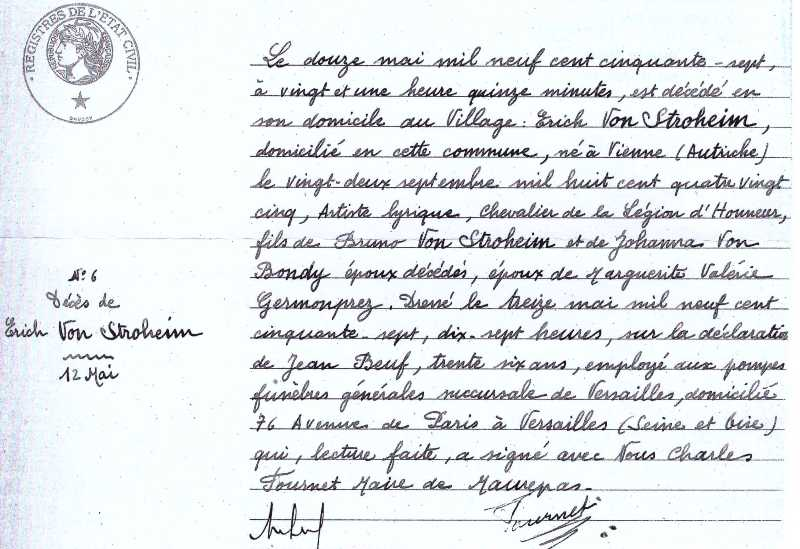 REGISTRES DE L'ETAT CIVIL
Le douze mai mil neuf cent cinquante-sept,
à vingt et une heure quinze minutes, est décédé en
son domicile au Village : Erich Von Stroheim,
domicilié en cette commune, né à Vienne (Autriche)
le vingt-deux septembre mil huit cent quatre vingt
cinq, Artiste lyrique, Chevalier de la Légion d'Honneur,
fils de Bruno Von Stroheim et de Johanna Von
Bondy époux décédés, époux de Marguerite Valérie
Germonprez. Dressé le treize mai mil neuf cent
cinquante-sept, dix-sept heures, sur la déclaration
de Jean Beuf, trente six ans, employé aux pompes
funèbres générales succursale de Versailles, domicilié
76 Avenue de Paris à Versailles (Seine et Oise)
qui, lecture faite, a signé avec Nous Charles
Tournet Maire de Maurepas.
Tournet
N° 6
Décès de
Erich Von Stroheim
12 Mai